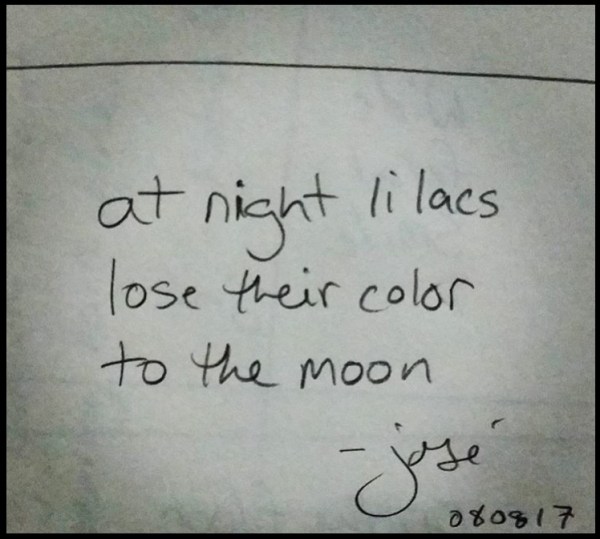 at night lilacs
lose their color
to the moon
- josé
080817